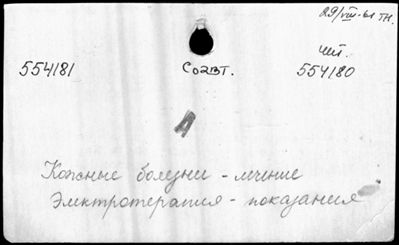 29/VIII-61 тн.
чит.
554181 Соавт. 554180
А
Кожные болезни - лечение
Электротерапия - показания